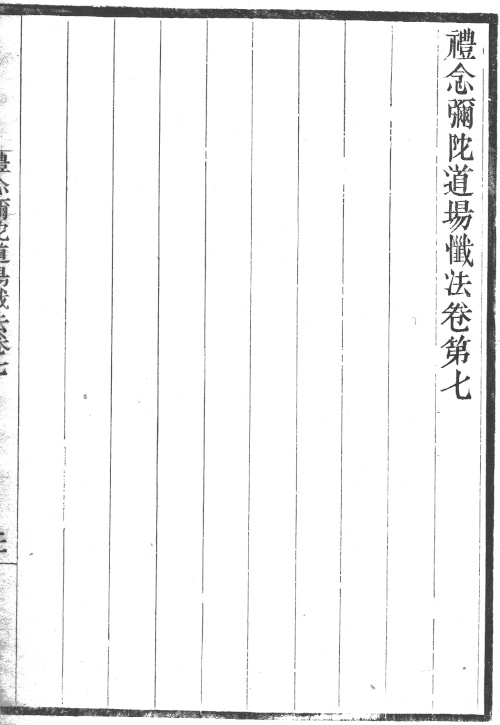 禮念彌陀道場懺法卷第七
禮念彌陀道場懺法卷七